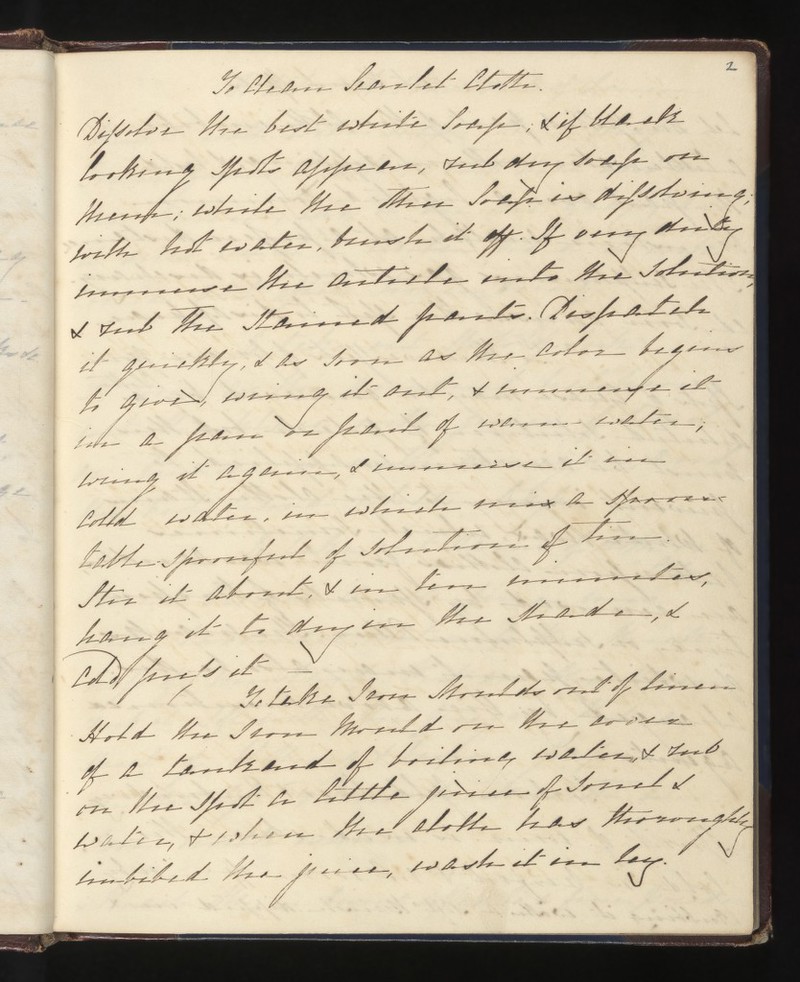 2
To Clean Scarlet Cloth.
Dissolve the best white Soap; & if black
looking spots appear, rub dry soap on
them; while the other Soap is dissolving;
with hot water, brush it off. If very dirty
immerse the article into the Solution,
& rub the stained parts. Dispatch
it quickly, & as soon as the color begins
to give, wring it out, & immerse it
in a pan or pail of warm water;
wring it again, & immerse it in
cold water, in which mix a spoon
table spoonful of Solution of tin.
Stir it about, & in ten minutes,
hang it to dry in the shade, &
Cold press it —
To take Iron Moulds out of linen
Hold the Iron Mould on the cover
of a tankard of boiling water, & rub
on the spot a little juice of Sorrel &
water, & when the cloth has thoroughly
imbibed the juice, wash it in ley.